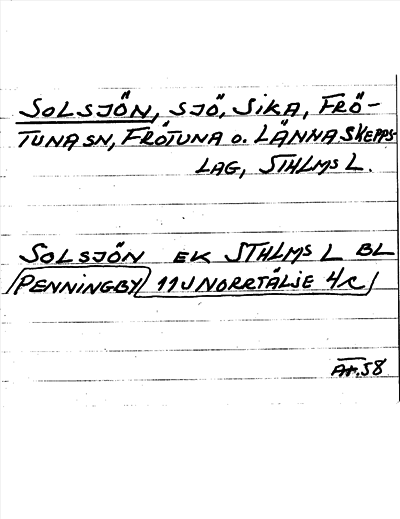 SOLSJÖN, SJÖ, SIKA, FRÖ-
TUNA SN, FRÖTUNA O. LÄNNA SKEPPS-
LAG, STHLMS L.
SOLSJÖN EK STHLMS L BL
PENNINGBY 11J NORRTÄLJE 4c
58